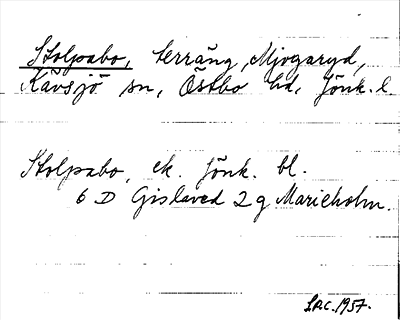 Stolpabo, terräng, Mjogaryd,
Kävsjö sn, Östbo hd, Jönk. l
Stolpabo, ek. Jönk. bl.
6 D Gislaved 2 g Marieholm.
1957.